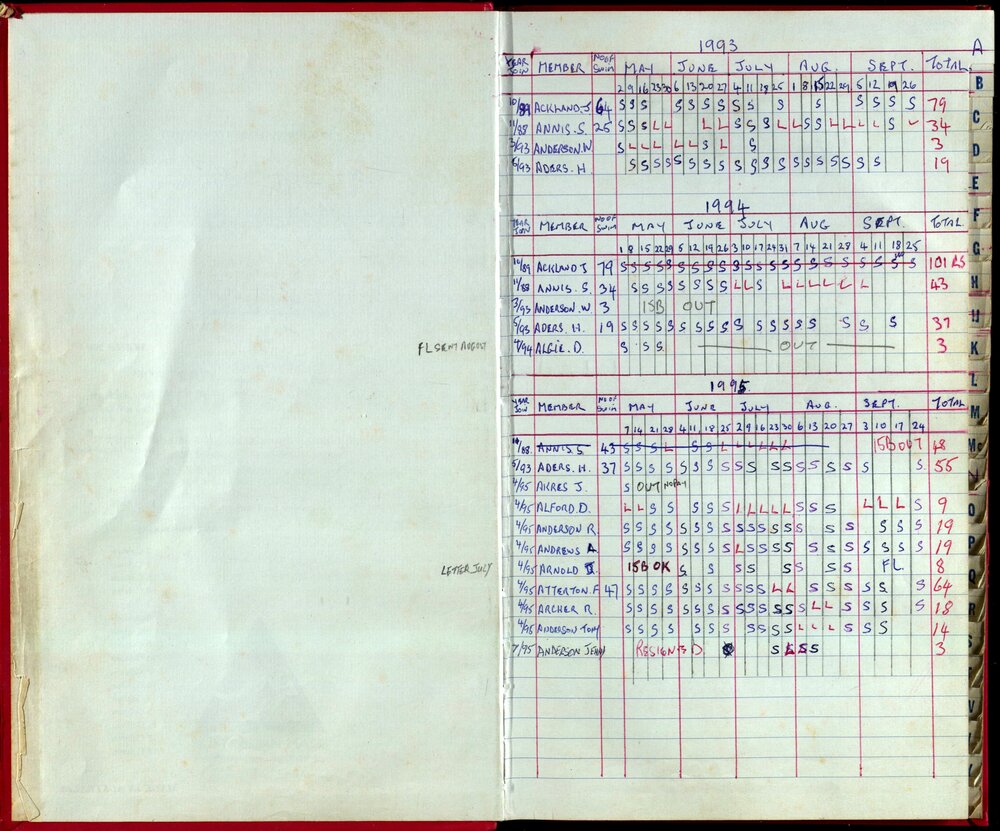 1993
A
YEAR JOIN MEMBER NO OF SWIM MAY JUNE JULY AUG. SEPT. TOTAL
2 9 16 23 30 6 13 20 27 4 11 18 25 1 8 15 22 29 5 12 19 26
10/89 ACKLAND J 64 S S S S S S S S S S S S S S S 79
11/88 ANNIS. S. 25 S S S L L L L S S S L L S S L L L L L S 34
3/93 ANDERSON.W S L L L L L S L S 3
5/93 ADERS. H. S S S S S S S S S S S S S S S S S S S 19
1994
YEAR JOIN MEMBER NO OF SWIM MAY JUNE JULY AUG SEPT. TOTAL
1 8 15 22 29 5 12 19 26 3 10 17 24 31 7 14 21 28 4 11 18 25
10/89 ACKLAND J 79 S S S S S S S S S S S S S S S S S S S S S S 101 RS
11/88 ANNIS. S. 34 S S S S S S S S L L S L L L L L L 43
3/93 ANDERSON.W 3 15B OUT
5/93 ADERS. H. 19 S S S S S S S S S S S S S S S S S S 37
FL SENT AUGUST 4/94 ALGIE. D. S S S OUT 3
1995
YEAR JOIN MEMBER NO OF SWIM MAY JUNE JULY AUG. SEPT. TOTAL
7 14 21 28 4 11 18 25 2 9 16 23 30 6 13 20 27 3 10 17 24
11/88. ANNIS S 43 S S S L S S L L L L L L 15B OUT 48
5/93 ADERS. H. 37 S S S S S S S S S S S S S S S S S S 55
4/95 AKRES J. S OUT NO PAY
4/95 ALFORD. D. L L S S S S S L L L L L S S S L L L S 9
4/95 ANDERSON R. S S S S S S S S S S S S S S S S S S S 19
4/95 ANDREWS A S S S S S S S S L S S S S S S S S S S S S 19
LETTER JULY 4/95 ARNOLD J. 15B OK S S S S S S S S FL 8
4/95 ATTERTON. F 47 S S S S S S S S S S S L L S S S S S S 64
4/95 ARCHER R. S S S S S S S S S S S S S S L L S S S S 18
4/95 ANDERSON TONY S S S S S S S S S S S L L L S S S 14
7/95 ANDERSON JENNY RESIGNED S L S S 3
B
C
D
E
F
G
H
K
L
M
Mc
O
P
Q
R
S